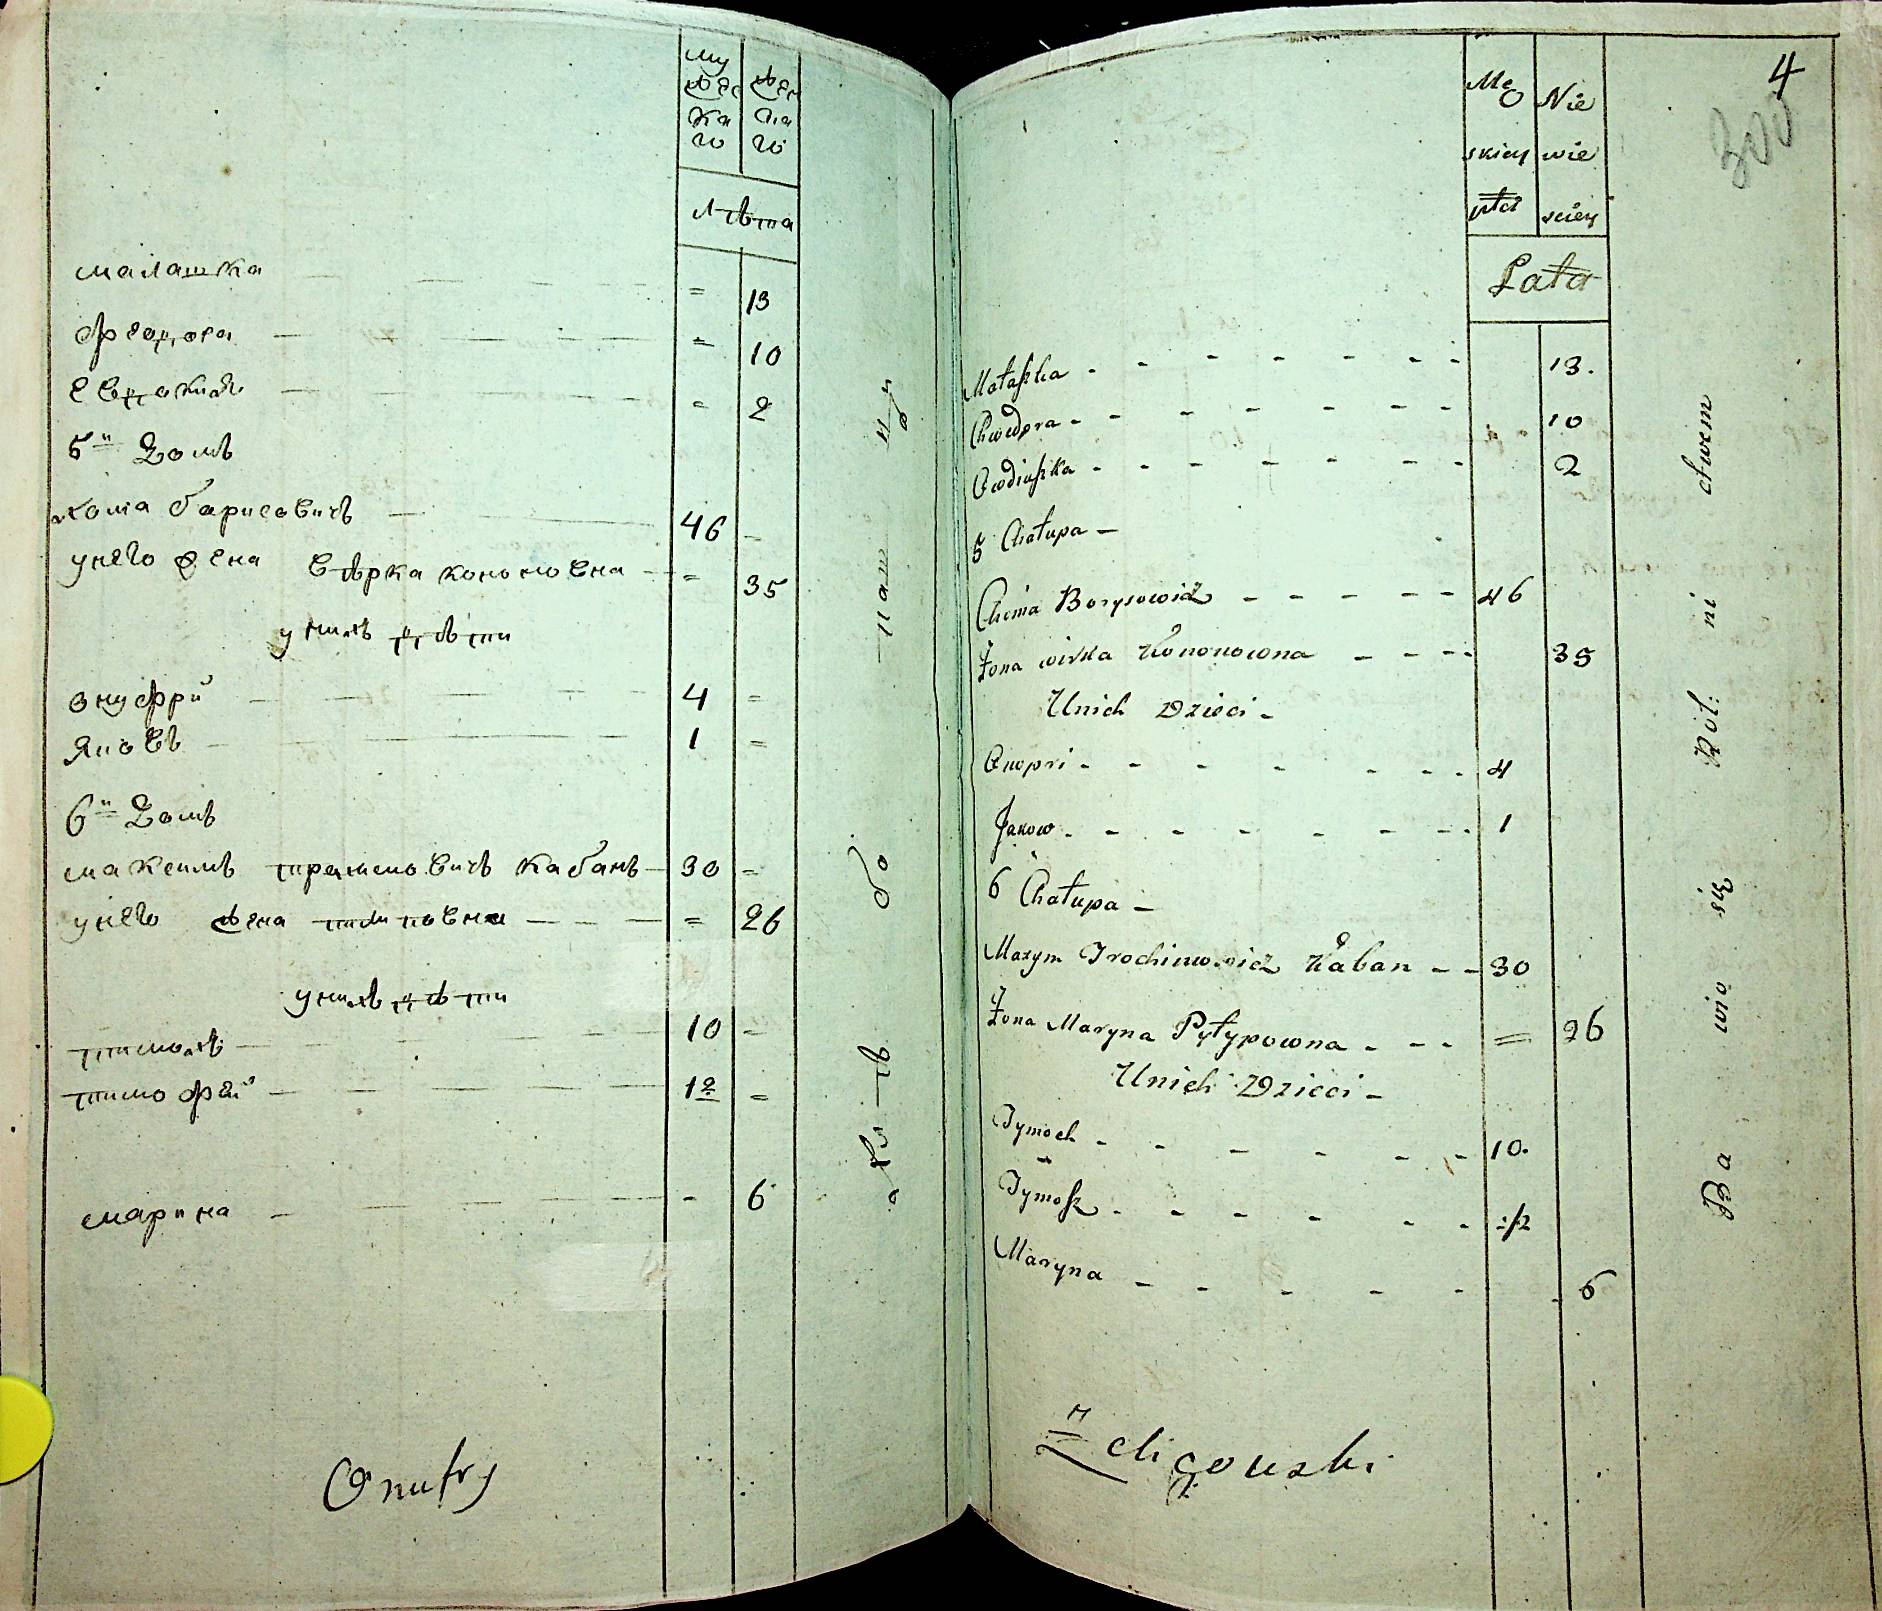 му жес ка го
жен ска го
лѣта
малашка = 13
Ѳеодора = 10
Евдокия = 2
5й Домъ
хома барисовичъ 46 =
унего жена вѣрка кононовна = 35
унихъ дѣти
Онуфрй 4 =
Яковъ 1 =
6й Домъ
максимъ трахимовичъ кабанъ 30 =
унего жена пилиповна = 26
унихъ дѣти
тимохъ 10 =
тимофей 1/2 =
марина - 6
Onufry
4
300
Mę skiey płci
Nie wie sciey
Lata
Małaszka 13.
Chwedora 10
Ewdiuszka 2
5 Chałupa
Choma Borysowicz 46
Żona wirka Kononowna 35
Unich Dzieci
Onopri 4
Jakow 1
6 Chałupa
Maxym Trochimowicz Kaban 30
Żona Maryna Pyłypowna = 26
Unich Dzieci
Tymoch 10.
Tymosz 1/2
Maryna 6
Zeligowski
Ba wio się Rol: ni ctwem